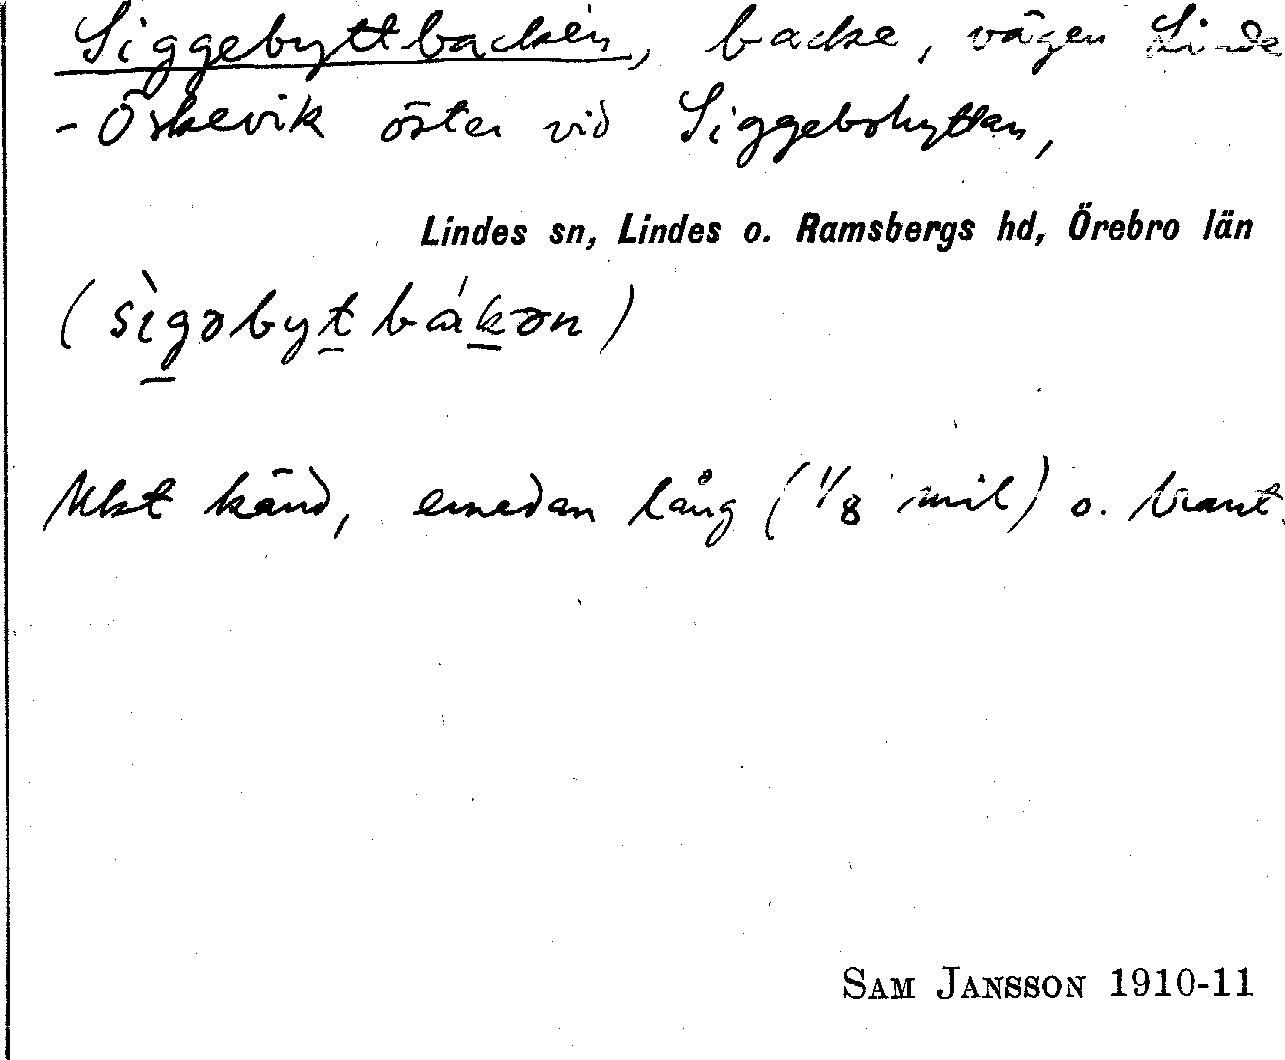 Siggebyttbacken, backe, vägen Linde
- Öskevik öster vid Siggebohyttan,
Lindes sn, Lindes o. Ramsbergs hd, Örebro län
(sìgəbytbákən)
känd, emedan lång (1/8 mil) o. brant.
SAM JANSSON 1910-11